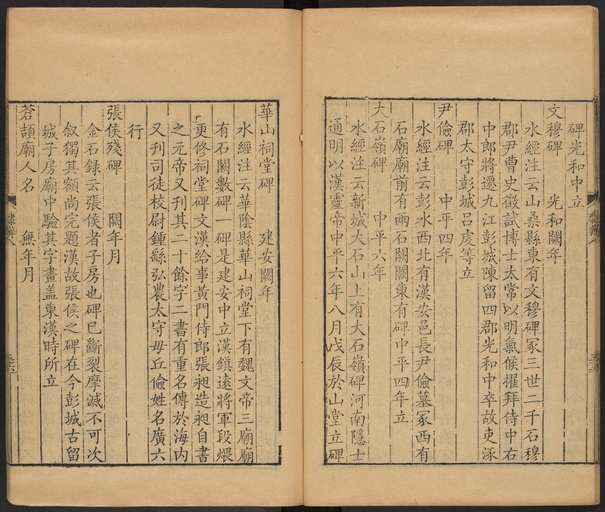 碑光和中立
文穆碑　光和闕年
水經注云山桑縣東有文穆碑冢三世二千石穆
郡尹曹史徵試博士太常以明氣候擢拜侍中右
中郎將遷九江彭城陳留四郡光和中卒故吏涿
郡太守彭城呂虔等立
尹儉碑　中平四年
水經注云彭水西北有漢安邑長尹儉墓冢西有
石廟廟前有兩石闕闕東有碑中平四年立
大石嶺碑　中平六年
水經注云新城大石山上有大石嶺碑河南隱士
通明以漢靈帝中平六年八月戊辰於山堂立碑
華山祠堂碑　建安闕年
水經注云華陰縣華山祠堂下有魏文帝三廟廟
有石闕數碑一碑是建安中立漢鎮遠將軍段煨
更修祠堂碑文漢給事黃門侍郎張昶造昶自書
之元帝又刊其二十餘字二書有重名傳於海內
又刊司徒校尉鍾繇弘農太守毋丘儉姓名廣六
行
張侯殘碑　闕年月
金石錄云張侯者子房也碑已斷裂摩滅不可次
叙獨其額尚完題漢故張侯之碑在今彭城古留
城子房廟中驗其字畫蓋東漢時所立
蒼頡廟人名　無年月